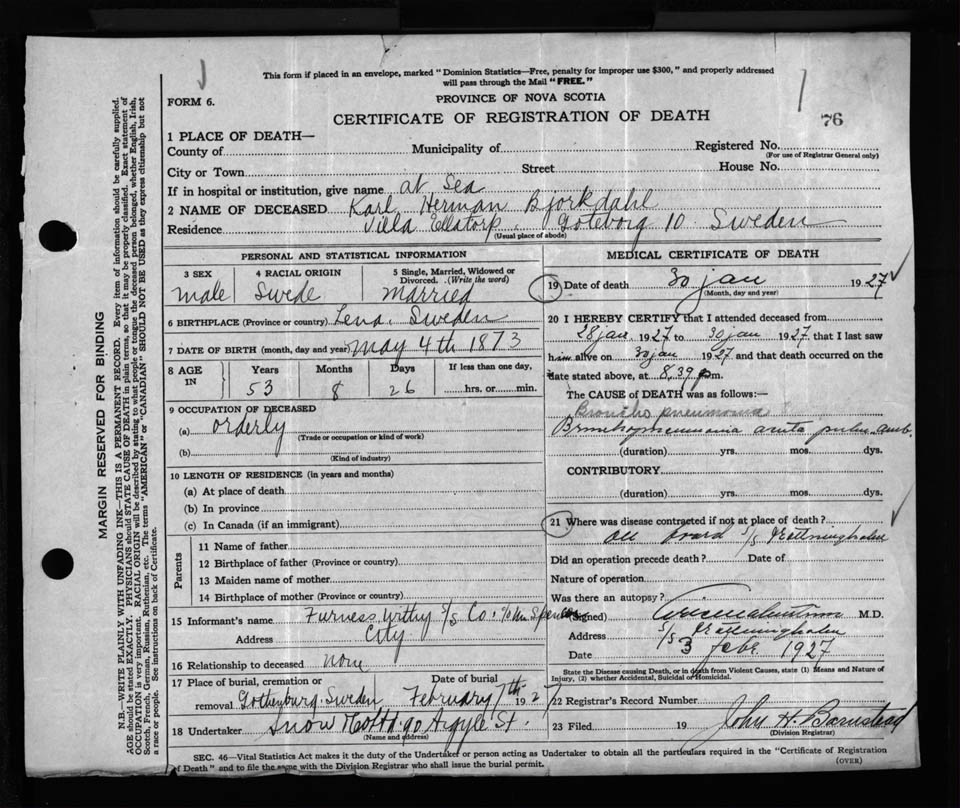 This form if placed in an envelope, marked "Dominion Statistics—Free, penalty for improper use $300," and properly addressed
will pass through the Mail "FREE."
FORM 6.
PROVINCE OF NOVA SCOTIA
CERTIFICATE OF REGISTRATION OF DEATH
76
1 PLACE OF DEATH—
County of Municipality of Registered No.
(For use of Registrar General only)
City or Town Street House No.
If in hospital or institution, give name at Sea
2 NAME OF DECEASED Karl Herman Bjorkdahl
Residence Villa Ellstorp, Goteborg 10 Sweden
(Usual place of abode)
PERSONAL AND STATISTICAL INFORMATION
3 SEX 4 RACIAL ORIGIN 5 Single, Married, Widowed or
Divorced. (Write the word)
male Swede Married
6 BIRTHPLACE (Province or country) Lena, Sweden
7 DATE OF BIRTH (month, day and year) May 4th 1873
8 AGE IN Years Months Days If less than one day,
53 8 26 hrs. or min.
9 OCCUPATION OF DECEASED
(a) orderly
(Trade or occupation or kind of work)
(b)
(Kind of industry)
10 LENGTH OF RESIDENCE (in years and months)
(a) At place of death
(b) In province
(c) In Canada (if an immigrant)
Parents
11 Name of father
12 Birthplace of father (Province or country)
13 Maiden name of mother
14 Birthplace of mother (Province or country)
15 Informant's name Furness Withy S/S Co.
Address City
16 Relationship to deceased none
17 Place of burial, cremation or Date of burial
removal Gothenburg Sweden February 7th 1927
18 Undertaker Snow 90 Argyle St.
(Name and address)
MEDICAL CERTIFICATE OF DEATH
19 Date of death 30 jan 1927
(Month, day and year)
20 I HEREBY CERTIFY that I attended deceased from
28 jan 1927 to 30 jan 1927 that I last saw
him alive on 30 jan 1927 and that death occurred on the
date stated above, at 8,39 p.m.
The CAUSE of DEATH was as follows:—
Broncho pneumonia
Bronchopneumonia acuta
(duration) yrs. mos. dys.
CONTRIBUTORY
(duration) yrs. mos. dys.
21 Where was disease contracted if not at place of death?
board S/S
Did an operation precede death? Date of
Nature of operation
Was there an autopsy?
(Signed) M.D.
Address S/S
Date 3 febr 1927
State the Disease causing Death, or in death from Violent Causes, state (1) Means and Nature of
Injury, (2) whether Accidental, Suicidal or Homicidal.
22 Registrar's Record Number
23 Filed 19 John H. Barnstead
(Division Registrar)
SEC. 46—Vital Statistics Act makes it the duty of the Undertaker or person acting as Undertaker to obtain all the particulars required in the "Certificate of Registration
of Death" and to file the same with the Division Registrar who shall issue the burial permit.
(OVER)
MARGIN RESERVED FOR BINDING
N.B.—WRITE PLAINLY WITH UNFADING INK—THIS IS A PERMANENT RECORD. Every item of information should be carefully supplied.
AGE should be stated EXACTLY. PHYSICIANS should STATE CAUSE OF DEATH in plain terms, so that it may be properly classified. Exact statement of
OCCUPATION is very important. RACIAL ORIGIN will be described by stating to what people or tongue the deceased person belonged, whether English, Irish,
Scotch, French, German, Russian, Ruthenian, etc. The terms "AMERICAN" or "CANADIAN" SHOULD NOT BE USED as they express citizenship but not
a race or people. See instructions on back of Certificate.